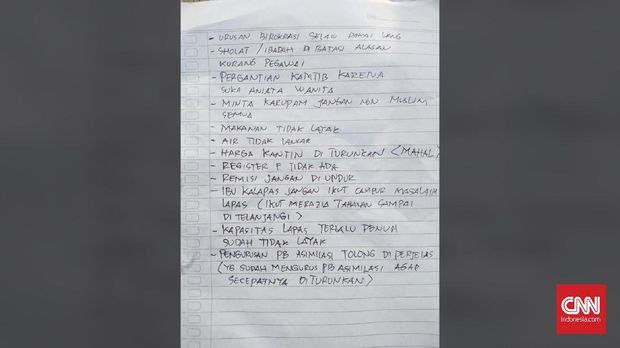 - URUSAN BIROKRASI SELALU PAKAI UANG
- SHOLAT / IBADAH DI BATASI ALASAN
KURANG PEGAWAI
- PERGANTIAN KAMTIB KARENA
SUKA ANIAYA WANITA
- MINTA KARUPAM JANGAN NON MUSLIM
SEMUA
- MAKANAN TIDAK LAYAK
- AIR TIDAK LANCAR
- HARGA KANTIN DI TURUNKAN (MAHAL)
- REGISTER F TIDAK ADA
- REMISI JANGAN DI UNDUR
- IBU KALAPAS JANGAN IKUT CAMPUR MASALAH
LAPAS (IKUT MERAZIA TAHANAN SAMPAI
DI TELANJANGI)
- KAPASITAS LAPAS TERLALU PENUH
SUDAH TIDAK LAYAK
- PENGURUSAN PB ASIMILASI TOLONG DI PERJELAS
(YG SUDAH MENGURUS PB ASIMILASI AGAR
SECEPATNYA DI TURUNKAN)
CNN
Indonesia.com